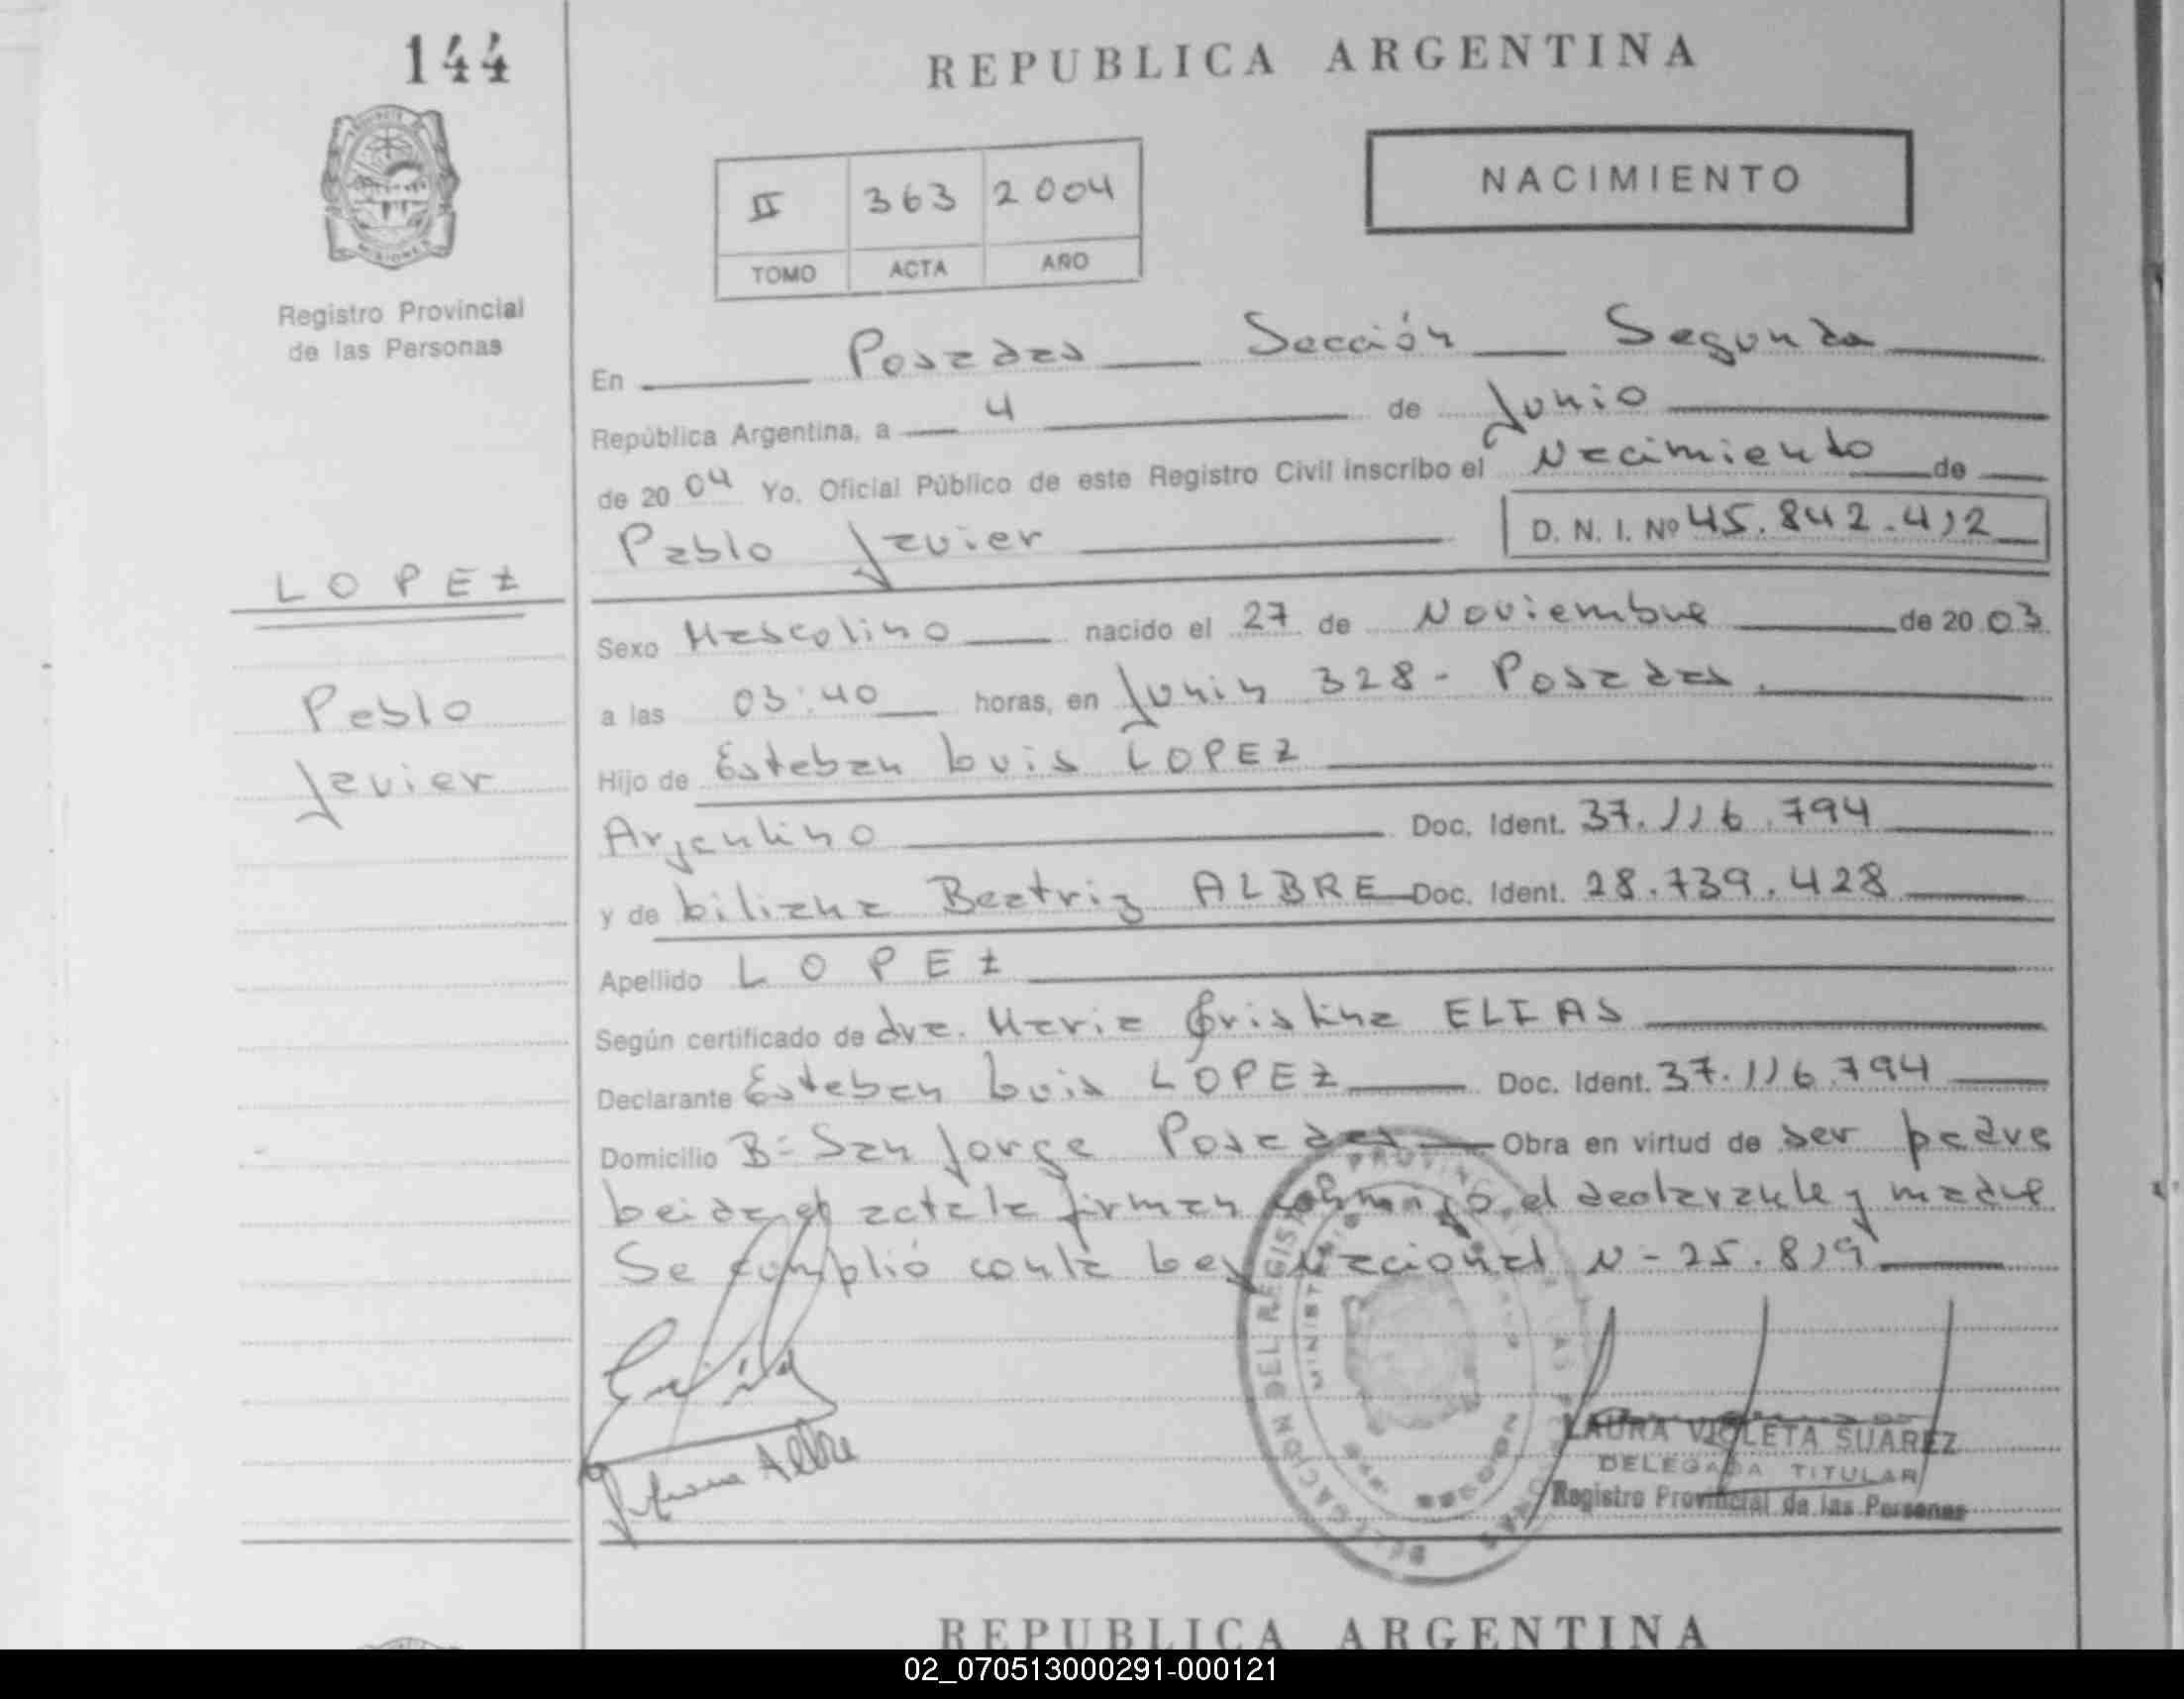 144
REPUBLICA ARGENTINA
NACIMIENTO
II 363 2004
TOMO ACTA AÑO
MISIONES
Registro Provincial
de las Personas
En Posadas Sección Segunda
República Argentina, a 4 de Junio
de 2004 Yo, Oficial Público de este Registro Civil inscribo el Nacimiento de
Pablo Javier D. N. I. Nº 45.842.412
LOPEZ
Pablo
Javier
Sexo Masculino nacido el 27 de Noviembre de 2003
a las 03:40 horas, en Junin 328 - Posadas.
Hijo de Esteban Luis LOPEZ
Argentino Doc. Ident. 37.116.794
y de Liliana Beatriz ALBRE Doc. Ident. 28.739.428
Apellido LOPEZ
Según certificado de dra. Maria Cristina ELIAS
Declarante Esteban Luis LOPEZ Doc. Ident. 37.116.794
Domicilio Bº San Jorge Posadas Obra en virtud de ser padre
Leida el acta la firman conmigo el declarante y madre
Se cumplió con la Ley Nacional Nº 25.819
DELEGACION DEL REGISTRO PROVINCIAL DE LAS PERSONAS
LAURA VIOLETA SUAREZ
DELEGADA TITULAR
Registro Provincial de las Personas
REPUBLICA ARGENTINA
02_070513000291-000121